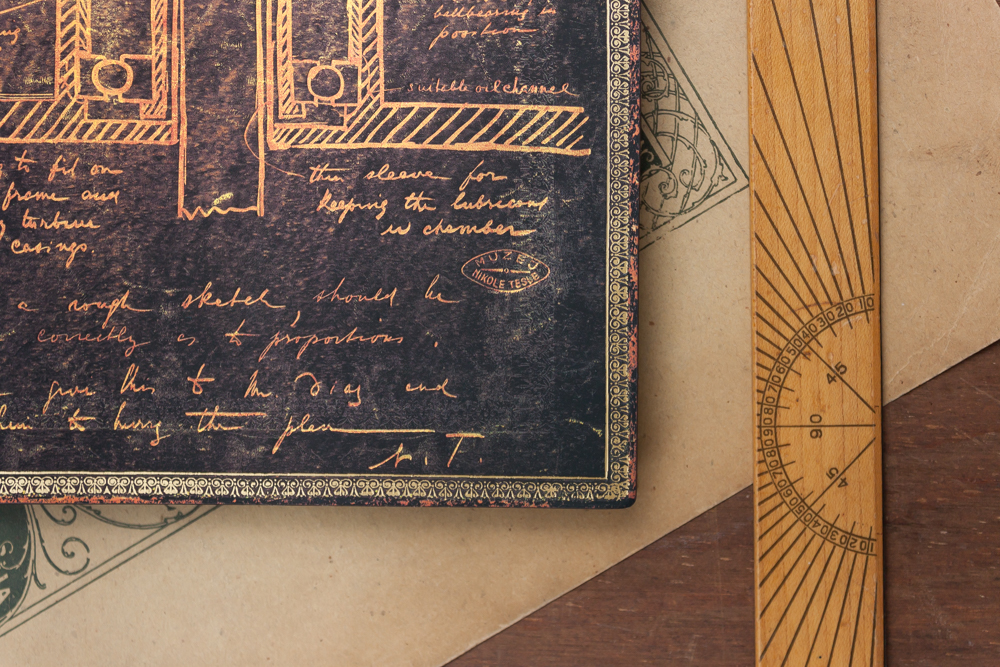 ballbearing in
position
suitable oil channel
to fit on
frame and
turbine
casings.
this sleeve for
keeping the lubricant
in chamber
MUZEJ
NIKOLE TESLE
a rough sketch, should be
correctly as to proportions.
give this to Mr and
to bring the plan
N. T.
10 20 30 40 50 60 70 80 90 80 70 60 50 40 30 20 10
45
90
45